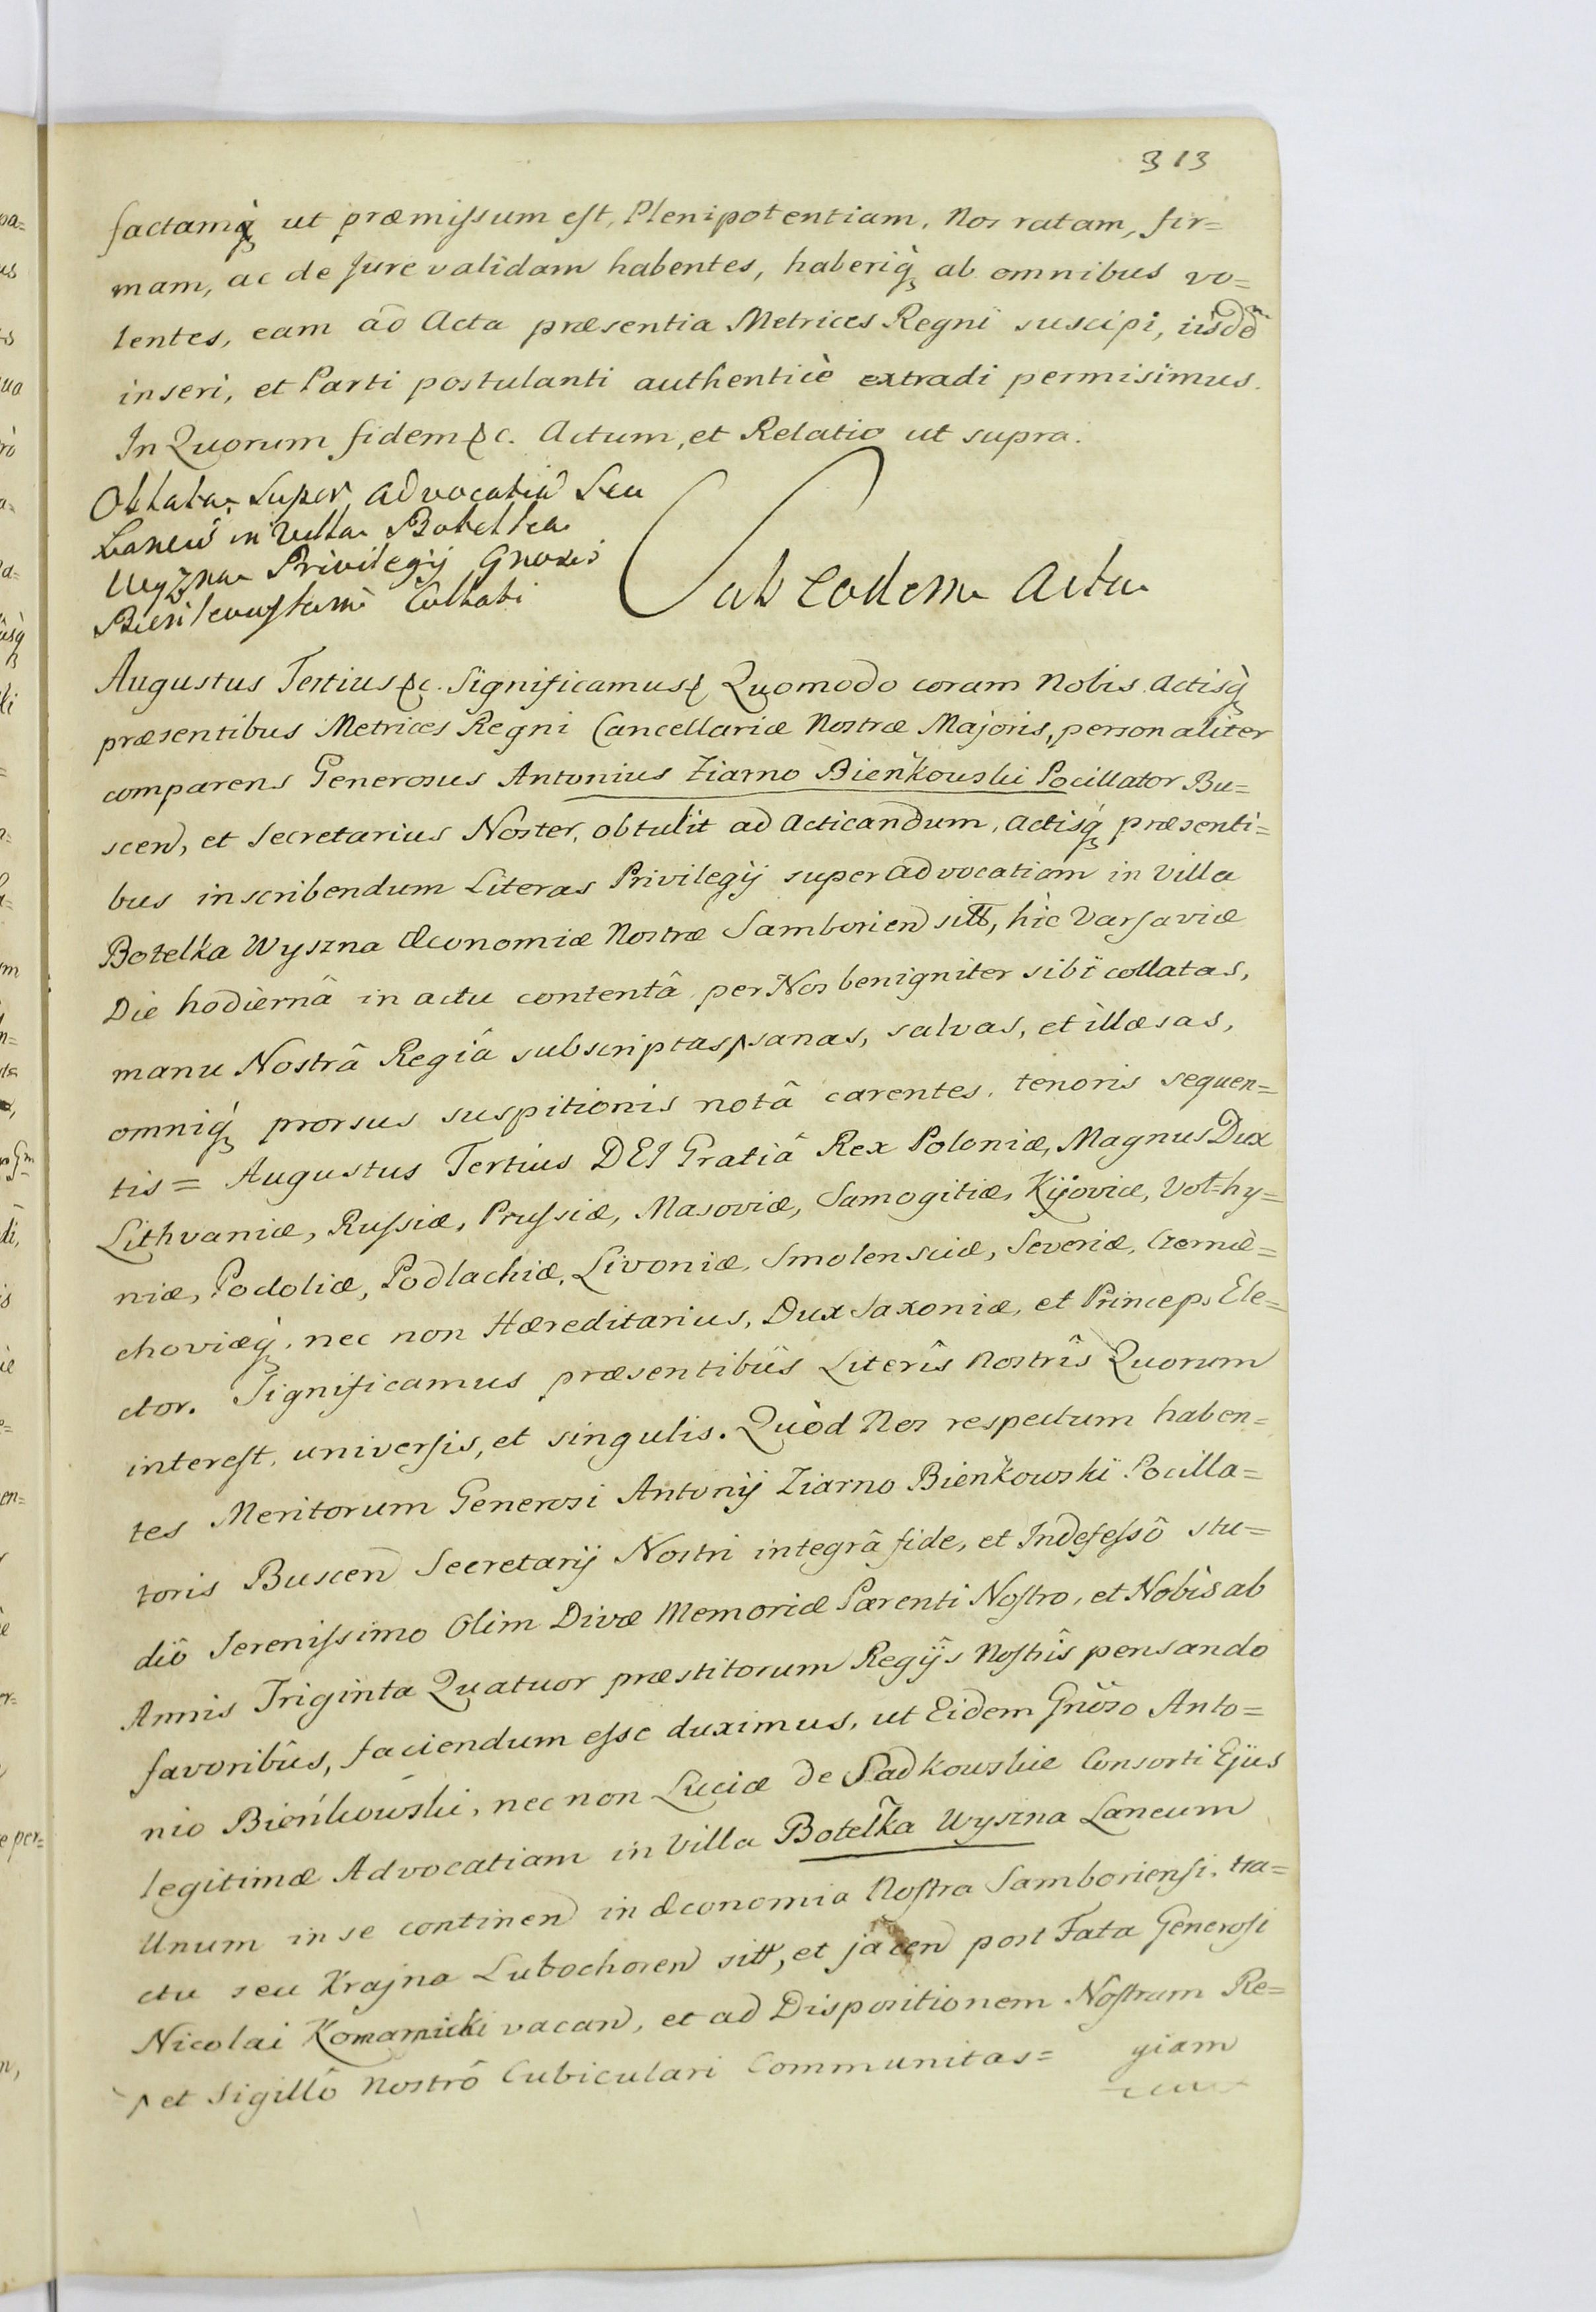 313
factamq̀ ut præmissum est, Plenipotentiam, Nos ratam, fir=
mam, ac de Jure validam habentes, haberiq̀ ab omnibus vo=
lentes, eam ad Acta præsentia Metrices Regni suscipi, iisdem
inseri, et Parti postulanti authenticè extradi permisimus.
In Quorum fidem &c. Actum, et Relatio ut supra.
Oblata super advocatiam Seu
Laneum in Villa Botelka
Wyzna Privilegij Gnoso
Bieńkowskemi Collati
Sub eodem Actu
Augustus Tertius &c. Significamus & Quomodo coram Nobis Actisq̀
præsentibus Metrices Regni Cancellariæ Nostræ Majoris, personaliter
comparens Generosus Antonius Ziarno Bieńkowski Pocillator Bu=
scen, et Secretarius Noster, obtulit ad Acticandum, Actisq̀ præsenti=
bus inscribendum Literas Privilegij super advocatiam in Villa
Botelka Wyszna Œconomiæ Nostræ Samborien sitt, hic Varsaviæ
Die hodiernâ in actu contentâ per Nos benigniter sibi collatas,
manu Nostrâ Regiâ subscriptas ^ sanas, salvas, et illæsas,
omniq̀ prorsus suspitionis notâ carentes, tenoris sequen=
tis = Augustus Tertius DEI Gratiâ Rex Poloniæ, Magnus Dux
Lithvaniæ, Russiæ, Prussiæ, Masoviæ, Samogitiæ, Kijoviæ, Vol=hy=
niæ, Podoliæ, Podlachiæ, Livoniæ, Smolensciæ, Severiæ, Czernie=
choviæq̀, nec non Hæreditarius, Dux Saxoniæ, et Princeps Ele=
ctor. Significamus præsentibûs Literîs Nostrîs Quorum
interest, universis, et singulis. Quòd Nos respectum haben=
tes Meritorum Generosi Antonij Ziarno Bieńkowski Pocilla=
toris Buscen Secretarij Nostri integrâ fide, et Indefessô stu=
diô Serenissimo Olim Divæ Memoriæ Parenti Nostro, et Nobis ab
Annis Triginta Quatuor præstitorum Regijs Nostrîs pensando
favoribûs, faciendum esse duximus, ut Eidem Gnoso Anto=
nio Bieńkowski, nec non Luciæ de Sadkowskie Consorti Ejus
legitimæ Advocatiam in Villa Botelka Wyszna Laneum
Unum in se continen in Œconomia Nostra Samboriensi, tra=
ctu seu Krajna Lubochoren sitt, et jacen post Fata Generosi
Nicolai Komarnicki vacan, et ad Dispositionem Nostram Re=
giam
^ et Sigillô Nostrô Cubiculari Communitas=